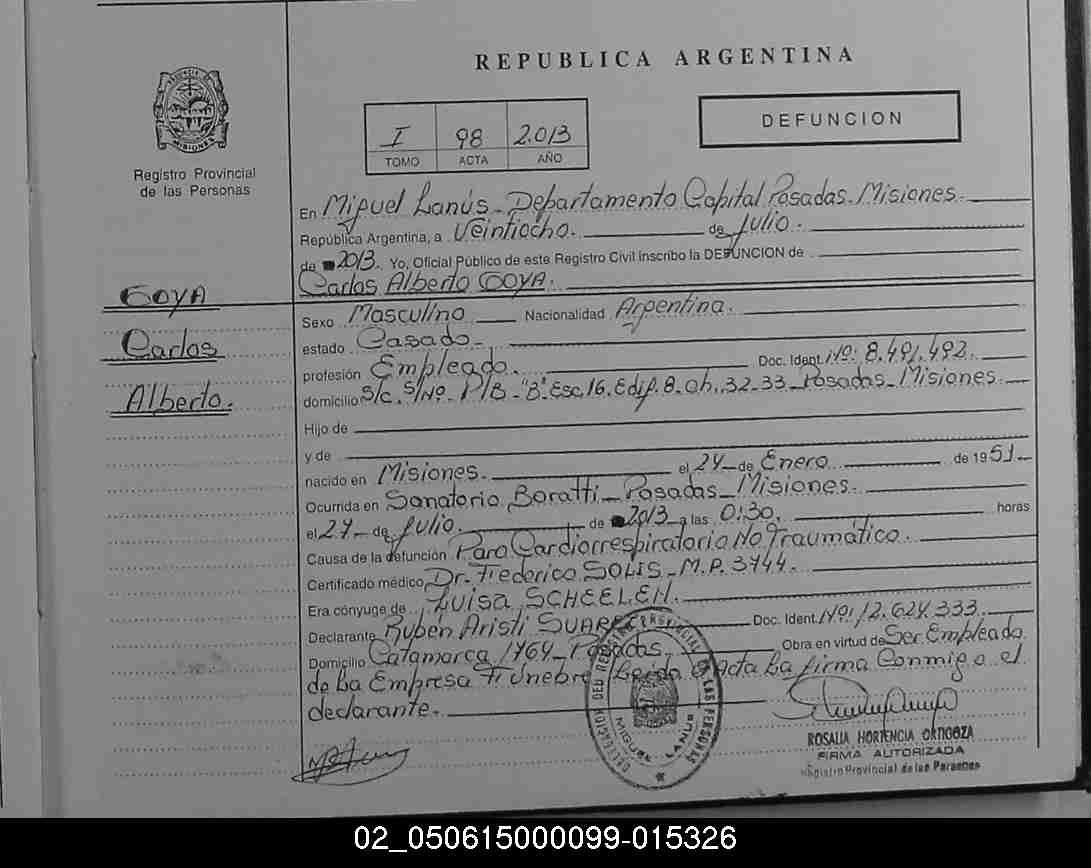 REPUBLICA ARGENTINA
PROVINCIA DE MISIONES
Registro Provincial
de las Personas
I 98 2.013
TOMO ACTA AÑO
DEFUNCION
En Miguel Lanús - Departamento Capital Posadas - Misiones -
República Argentina, a Veintiocho. de Julio -
de 2013. Yo, Oficial Público de este Registro Civil inscribo la DEFUNCION de
Carlos Alberto GOYA.
GOYA
Carlos
Alberto.
Sexo Masculino Nacionalidad Argentina.
estado Casado -
profesión Empleado. Doc. Ident. Nº: 8.491.492.
domicilio S/C. S/Nº - P/B - "B" Esc. 16. Edif. 8. Ch. 32-33 - Posadas - Misiones.
Hijo de
y de
nacido en Misiones. el 24 - de Enero de 1951 -
Ocurrida en Sanatorio Boratti - Posadas - Misiones.
el 27 - de Julio. de 2013 a las 0:30. horas
Causa de la defunción Paro Cardiorrespiratorio No Traumático.
Certificado médico Dr. Federico SOLIS - M.P. 3744.
Era cónyuge de Luisa SCHEELEN.
Declarante Rubén Aristi SUAREZ Doc. Ident. Nº: 12.624.333.
Domicilio Catamarca 1764 - Posadas. Obra en virtud de Ser Empleado
de La Empresa Fúnebre Leída el Acta La firma Conmigo el
declarante.
DELEGACION DEL REGISTRO PROVINCIAL DE LAS PERSONAS
MIGUEL LANUS
ROSALIA HORTENCIA ORTIGOZA
FIRMA AUTORIZADA
Registro Provincial de las Personas
02_050615000099-015326